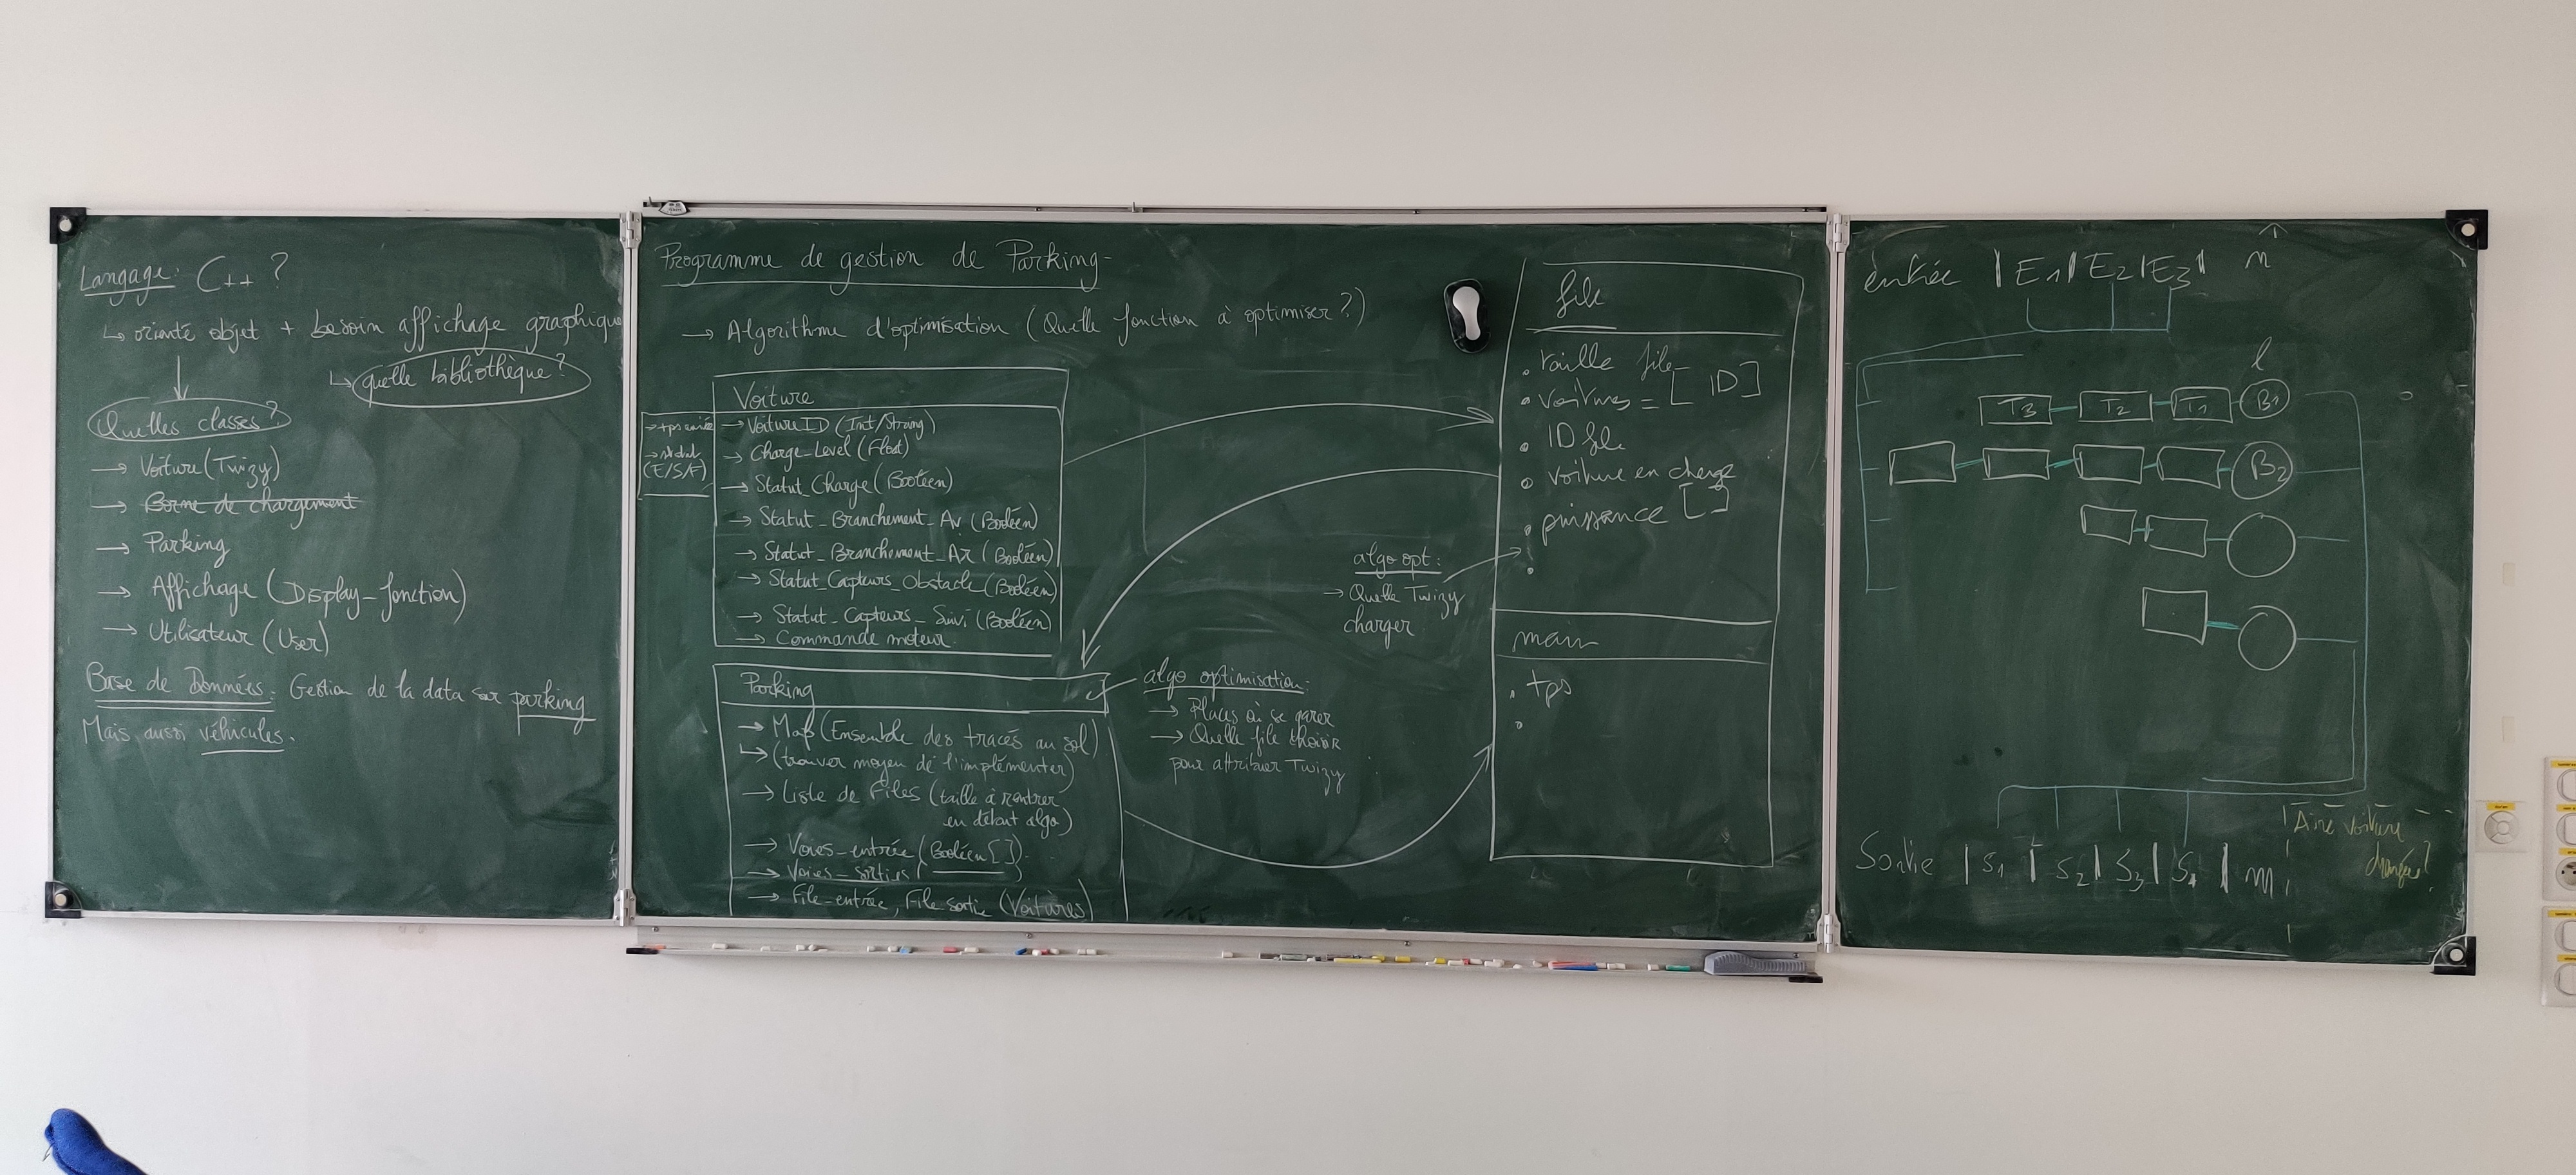 Langage: C++ ?
↳ orienté objet + besoin affichage graphique
↳ quelle bibliothèque?
Quelles classes?
→ Voiture (Twizy)
→ Borne de chargement
→ Parking
→ Affichage (Display_fonction)
→ Utilisateur (User)
Base de Données: Gestion de la data sur parking
Mais aussi véhicules.
Programme de gestion de Parking
→ Algorithme d'optimisation (Quelle fonction à optimiser?)
Voiture
→ tps
(E/S/F)
→ VoitureID (Int/String)
→ Charge_Level (Float)
→ Statut_Charge (Booléen)
→ Statut_Branchement_Av (Booléen)
→ Statut_Branchement_Ar (Booléen)
→ Statut_Capteurs_Obstacle (Booléen)
→ Statut_Capteurs_Suivi (Booléen)
→ Commande moteur
Parking
→ Map (Ensemble des tracés au sol)
↳ (trouver moyen de l'implémenter)
→ Liste de Files (taille à rentrer
en début algo)
→ Voies_entrée (Booléen[])
→ Voies_sorties
→ File_entrée, File sortie (Voitures)
algo optimisation:
→ Places où se garer
→ Quelle file choisir
pour attribuer Twizy
algo opt:
→ Quelle Twizy
charger
file
• taille file
• voitures = [ ID ]
• ID file
• voiture en charge
• puissance [ ]
main
• tps
entrée | E1 | E2 | E3 | n
l
T3 T2 T1 B1
B2
Sortie | S1 | S2 | S3 | S4 | m
Aire voiture
chargée?